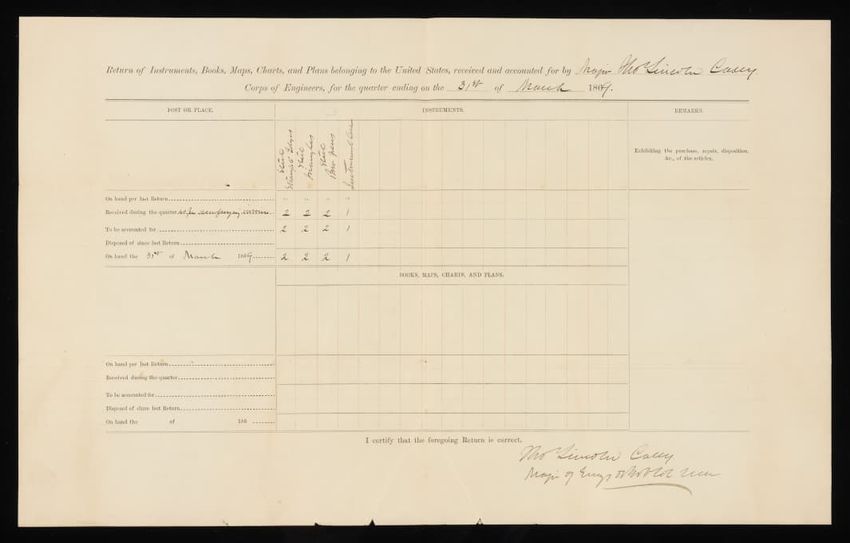 Return of Instruments, Books, Maps, Charts, and Plans belonging to the United States, received and accounted for by Major Thos Lincoln Casey
Corps of Engineers, for the quarter ending on the 31st of March 1869.
POST OR PLACE.
INSTRUMENTS.
REMARKS.
Exhibiting the purchase, repair, disposition, &c., of the articles.
On hand per last Return
Received during the quarter 2 2 2 1
To be accounted for 2 2 2 1
Disposed of since last Return
On hand the 31st of March 1869 2 2 2 1
BOOKS, MAPS, CHARTS, AND PLANS.
On hand per last Return
Received during the quarter
To be accounted for
Disposed of since last Return
On hand the of 186
I certify that the foregoing Return is correct.
Thos Lincoln Casey
Major of Engrs